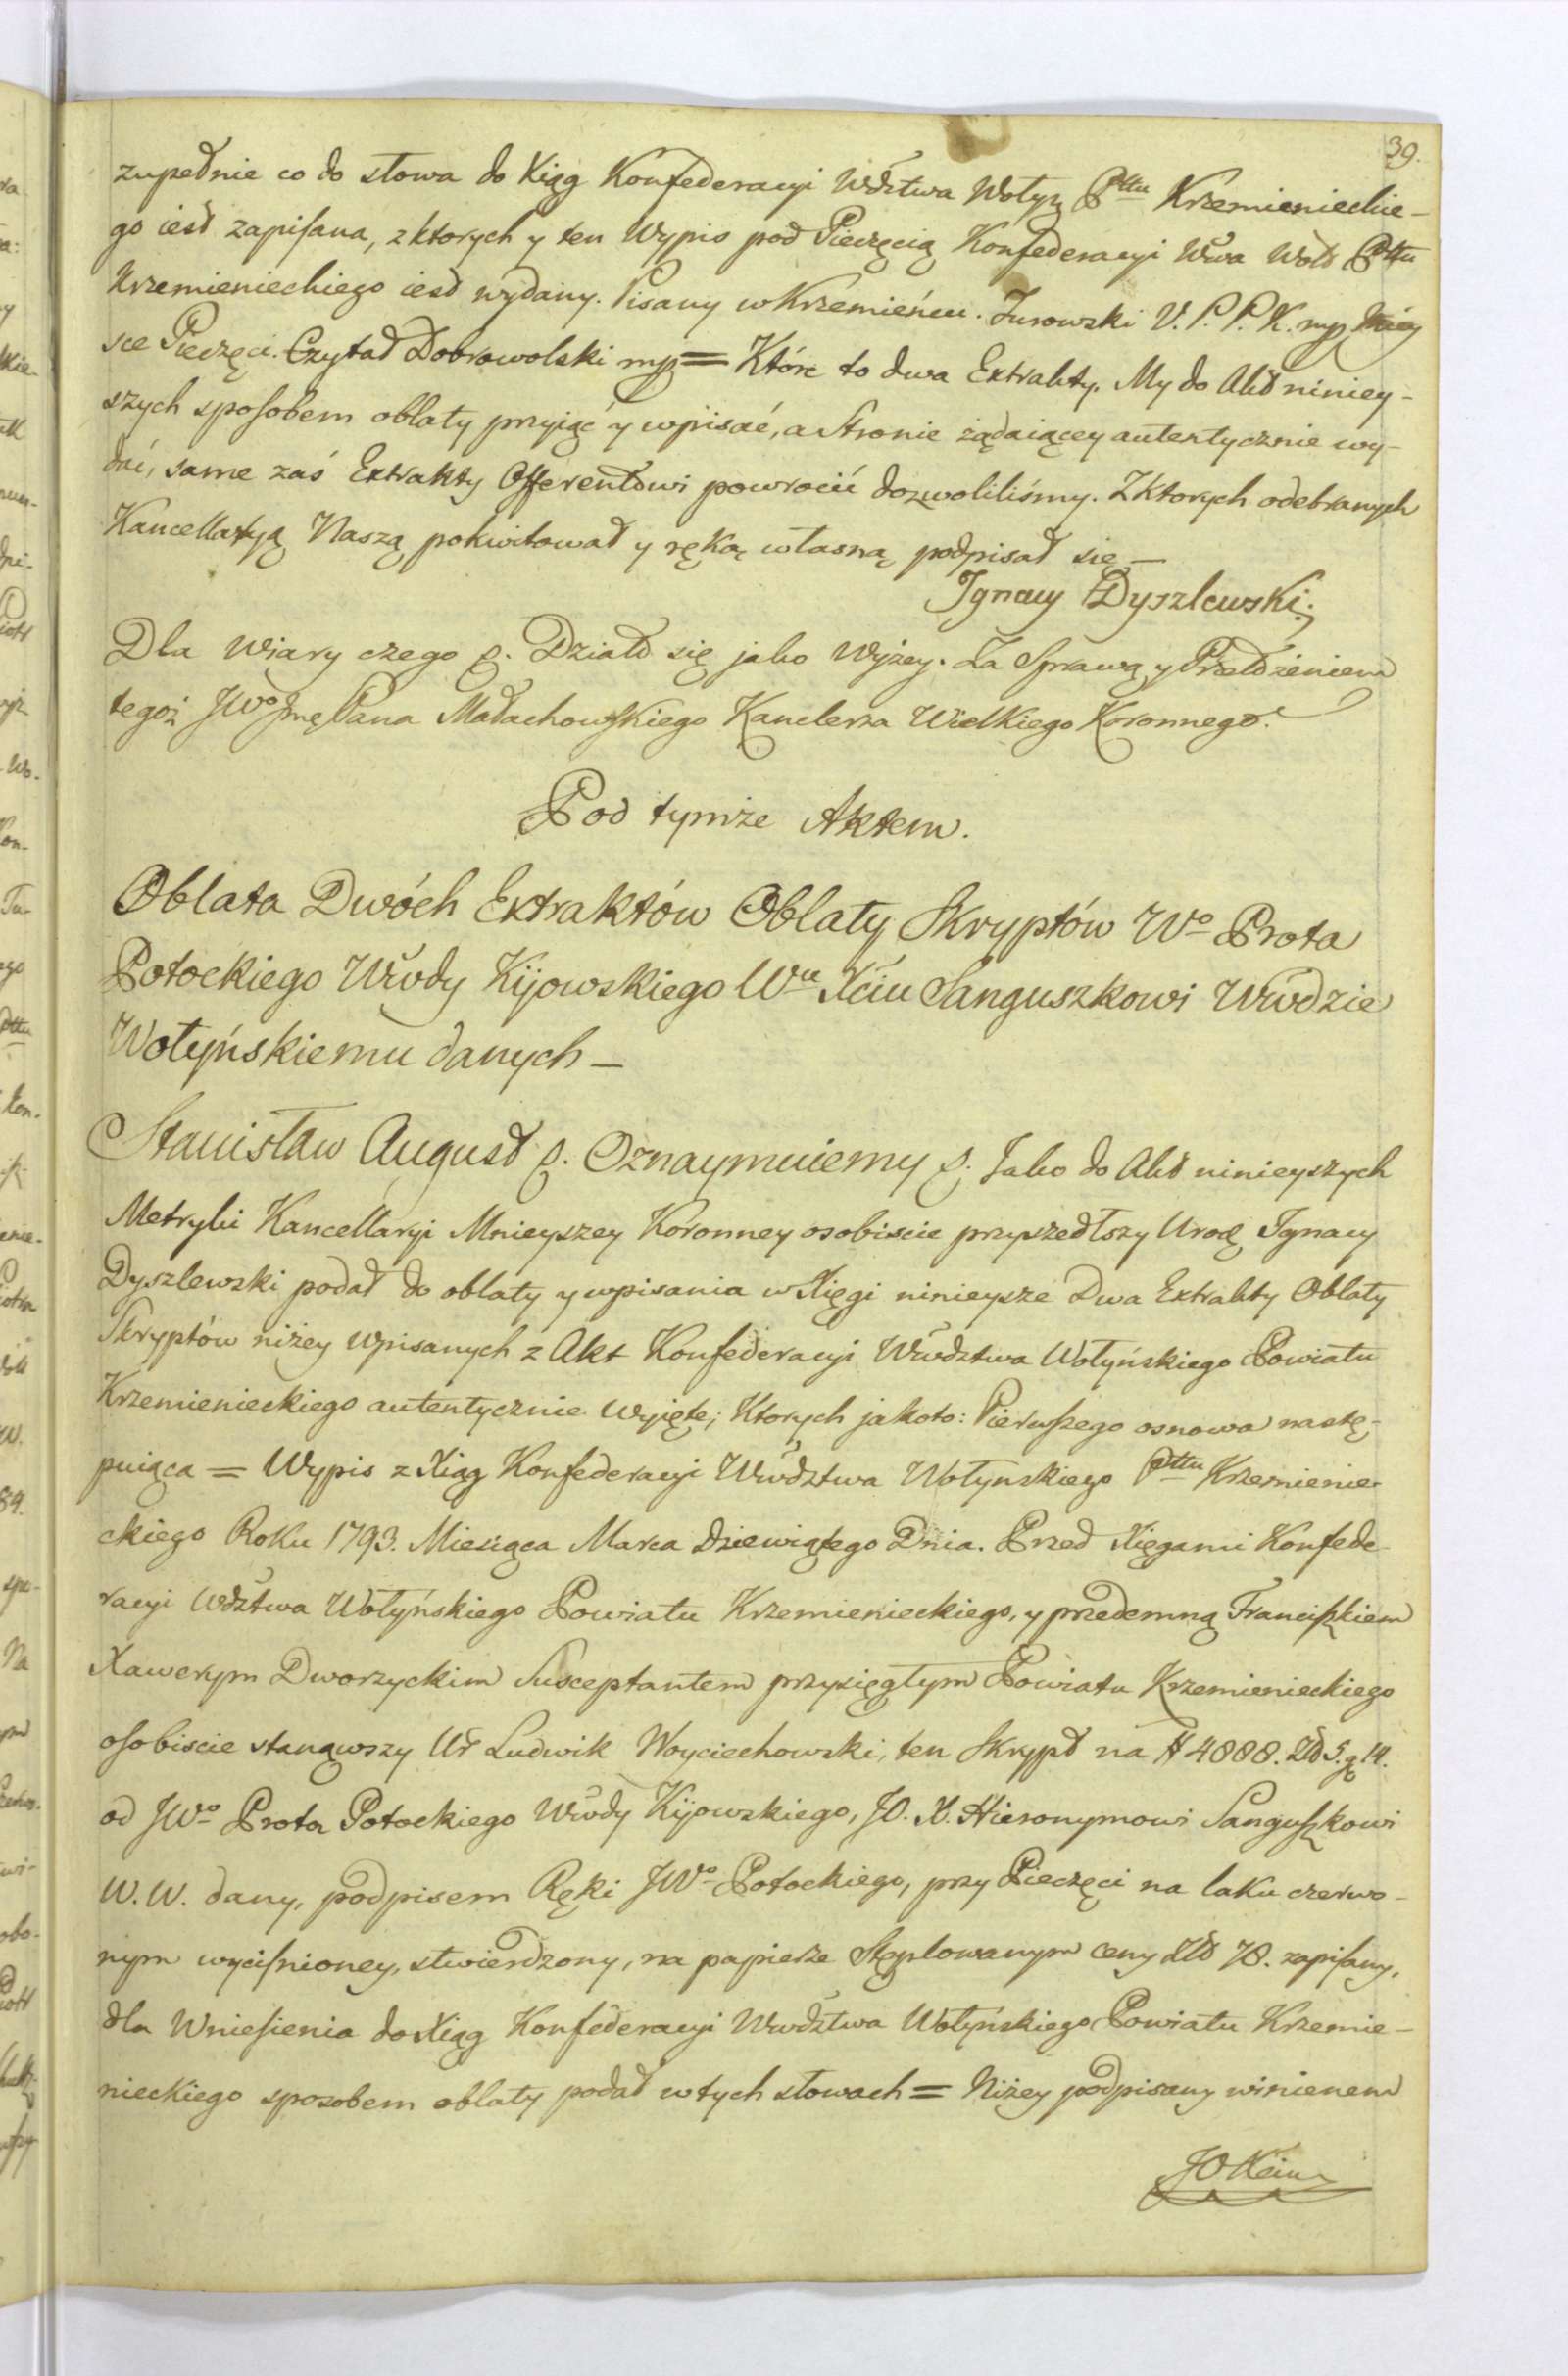 39.
zupełnie co do słowa do Xiąg Konfederacyi Wdztwa Wołyń Pttu Krzemienieckie-
go iest zapisana, z ktorych y ten Wypis pod Pieczęcią Konfederacyi Wwa Woło Pttu
Krzemienieckiego iest wydany. Pisany w Krzemieńcu. Jurowski V. P. P. K. mp. Miey
sce Pieczęci. Czytał Dobrowolski mp = Które to dwa Extrakty. My do Akt niniey-
szych sposobem oblaty przyiąć y wpisać, a Stronie żądaiącey autentycznie wy-
dać, same zaś Extrakty Offerentowi powrócić dozwoliliśmy. Z ktorych odebranych
Kancellaryą Naszą pokwitował y ręką własną podpisał się —
Ignacy Dyszlewski.
Dla Wiary czego p. Działo się jako Wyżey. Za Sprawą y Przełożeniem
tegoż JWo Jmę Pana Małachowskiego Kanclerza Wielkiego Koronnego.
Pod tymże Aktem.
Oblata Dwóch Extraktów Oblaty Skryptów Wo Prota
Potockiego Wwody Kijowskiego Wu Xciu Sanguszkowi Wwodzie
Wołyńskiemu danych —
Stanisław August p. Oznaymuiemy p. Jako do Akt ninieyszych
Metryki Kancellaryi Mnieyszey Koronney osobiscie przyszedłszy Urodz Ignacy
Dyszlewski podał do oblaty y wpisania w Xięgi ninieysze Dwa Extrakty Oblaty
Skryptów niżey wpisanych z Akt Konfederacyi Wwdztwa Wołyńskiego Powiatu
Krzemienieckiego autentycznie wyięte; Ktorych jakoto: Pierwszego osnowa nastę-
puiąca = Wypis z Xiąg Konfederacyi Wwdztwa Wołynskiego Pttu Krzemienie-
ckiego Roku 1793. Miesiąca Marca dziewiątego Dnia. Przed Xięgami Konfede-
racyi Wdztwa Wołyńskiego Powiatu Krzemienieckiego, y przedemną Franciszkiem
Xawerym Dworzyckim Susceptantem przysięgłym Powiatu Krzemienieckiego
osobiscie stanąwszy Ur Ludwik Woyciechowski, ten Skrypt na # 4888. Zł 5. g 14.
od JWo Prota Potockiego Wwody Kijowskiego, JO. X. Hieronymowi Sanguszkowi
W. W. dany, podpisem Ręki JWo Potockiego, przy Pieczęci na laku czerwo-
nym wycisnioney, stwierdzony, na papierze Stęplowanym ceny Złt 78. zapisany,
dla Wniesienia do Xiąg Konfederacyi Wwdztwa Wołyńskiego Powiatu Krzemie-
nieckiego sposobem oblaty podał w tych słowach = Niżey podpisany winienem
JO Xciu